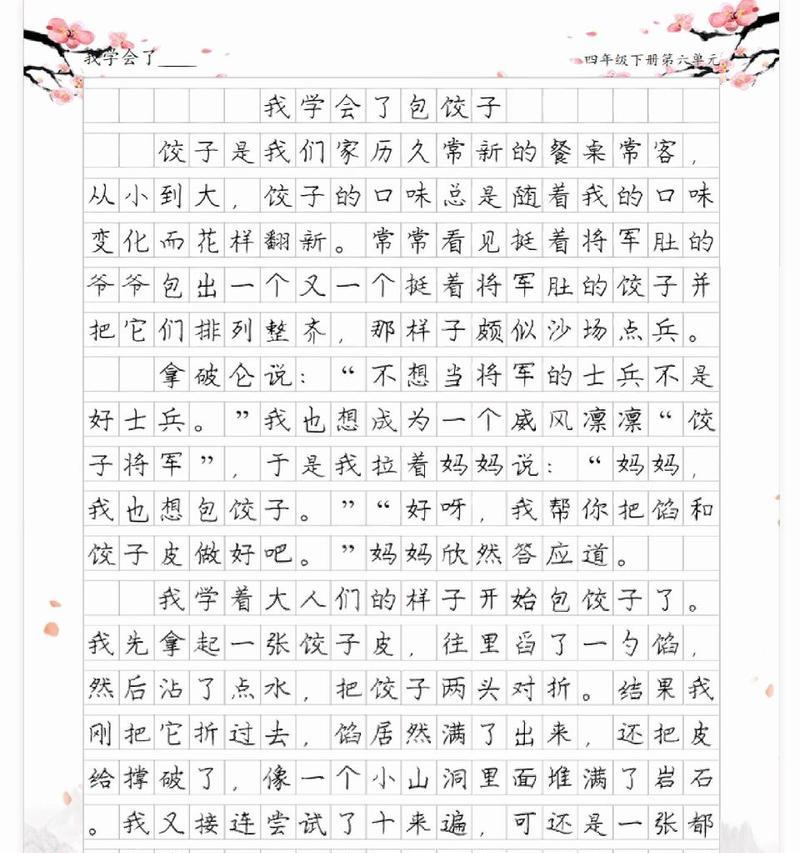 我学会了____ 四年级下册第六单元
我学会了包饺子
饺子是我们家历久常新的餐桌常客，
从小到大，饺子的口味总是随着我的口味
变化而花样翻新。常常看见挺着将军肚的
爷爷包出一个又一个挺着将军肚的饺子并
把它们排列整齐，那样子颇似沙场点兵。
拿破仑说：“不想当将军的士兵不是
好士兵。”我也想成为一个威风凛凛“饺
子将军”，于是我拉着妈妈说：“妈妈，
我也想包饺子。”“好呀，我帮你把馅和
饺子皮做好吧。”妈妈欣然答应道。
我学着大人们的样子开始包饺子了。
我先拿起一张饺子皮，往里舀了一勺馅，
然后沾了点水，把饺子两头对折。结果我
刚把它折过去，馅居然满了出来，还把皮
给撑破了，像一个小山洞里面堆满了岩石
。我又接连尝试了十来遍，可还是一张都